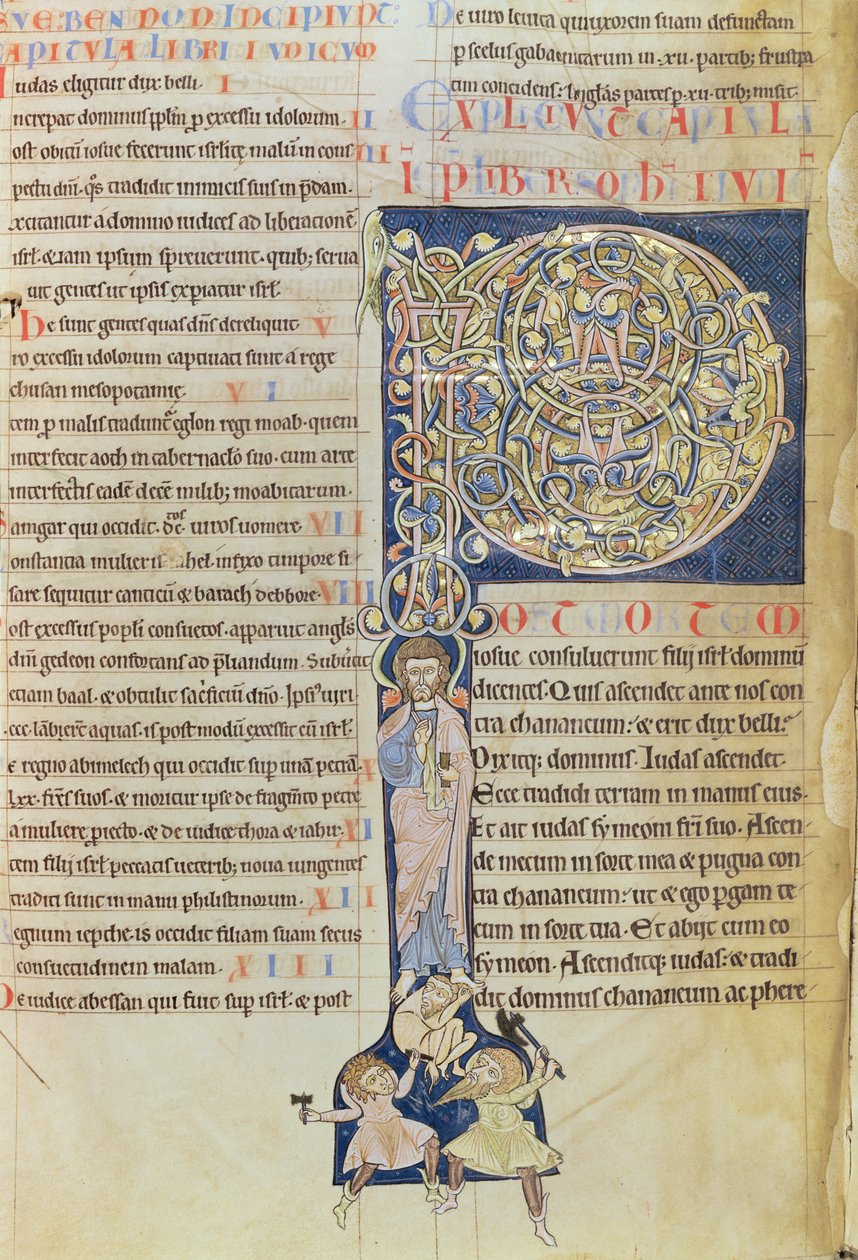 SVE·BEN NON·INCIPIVNT·
CAPITVLA LIBRI IVDICVM
Iudas eligitur dux belli· I
ncrepat dominus pplm p excessu idolorum· II
ost obitū iosue fecerunt isrlite malū in cons III
pectu dnī· q̄s tradidit inimicis suis in p̄dam·
xcitantur a domino iudices ad liberacionē
isrl· & iam ipsum spreuerunt· qtib; serua
uit gentes ut ipsis expiatur isrl·
He sunt gentes quas dn̄s dereliquit V
ro excessu idolorum captiuati sunt a rege
chusan mesopotamię· VI
tem p malis tradunt eglon regi moab· quem
interfecit aoth in tabernaclo suo· cum arte
interfectis eadē decē milib; moabitarum·
Samgar qui occidit· dc̄tos uiros uomere· VII
onstantia mulieris ahel· infixo timpore si
sare sequitur canticū & barach debbore· VIII
ost excessus popli consuetos· apparuit angls
dnī gedeon confortans ad pliandum· Subuertit
etiam baal· & obtulit sacrificiū dn̄o· Ipsi uiri
·ccc· lābierēt aquas· is post modū excessit cū isrl·
e regno abimelech qui occidit sup unā petrā· X
lxx· frēs suos· & moritur ipse de fragmto petre
a muliere piecto· & de iudice thora & iahir· XI
tem filij isrl peccatis ueterib; noua iungentes
traditi sunt in manu philistinorum· XII
egnum iepthe· is occidit filiam suam secus
consuetudinem malam· XIII
De iudice abessan qui fuit sup isrl· & post
De uiro leuita qui uxorem suam defunctam
p scelus gabaonitarum in ·xii· partib; frustra
tim concidens· singlas partes p ·xii· trib; misit·
EXPLICIVNT CAPITVLA
INCIPIT LIBER
POST MORTEM
iosue consuluerunt filij isrl dominū
dicentes· Quis ascendet ante nos con
tra chananeum· & erit dux belli·
Dixitq; dominus· Iudas ascendet·
Ecce tradidi terram in manus eius·
Et ait iudas symeoni fri suo· Ascen
de mecum in sorte mea & pugna con
tra chananeum· ut & ego pgam te
cum in sorte tua· Et abijt cum eo
symeon· Ascenditq; iudas· & tradi
dit dominus chananeum ac phere